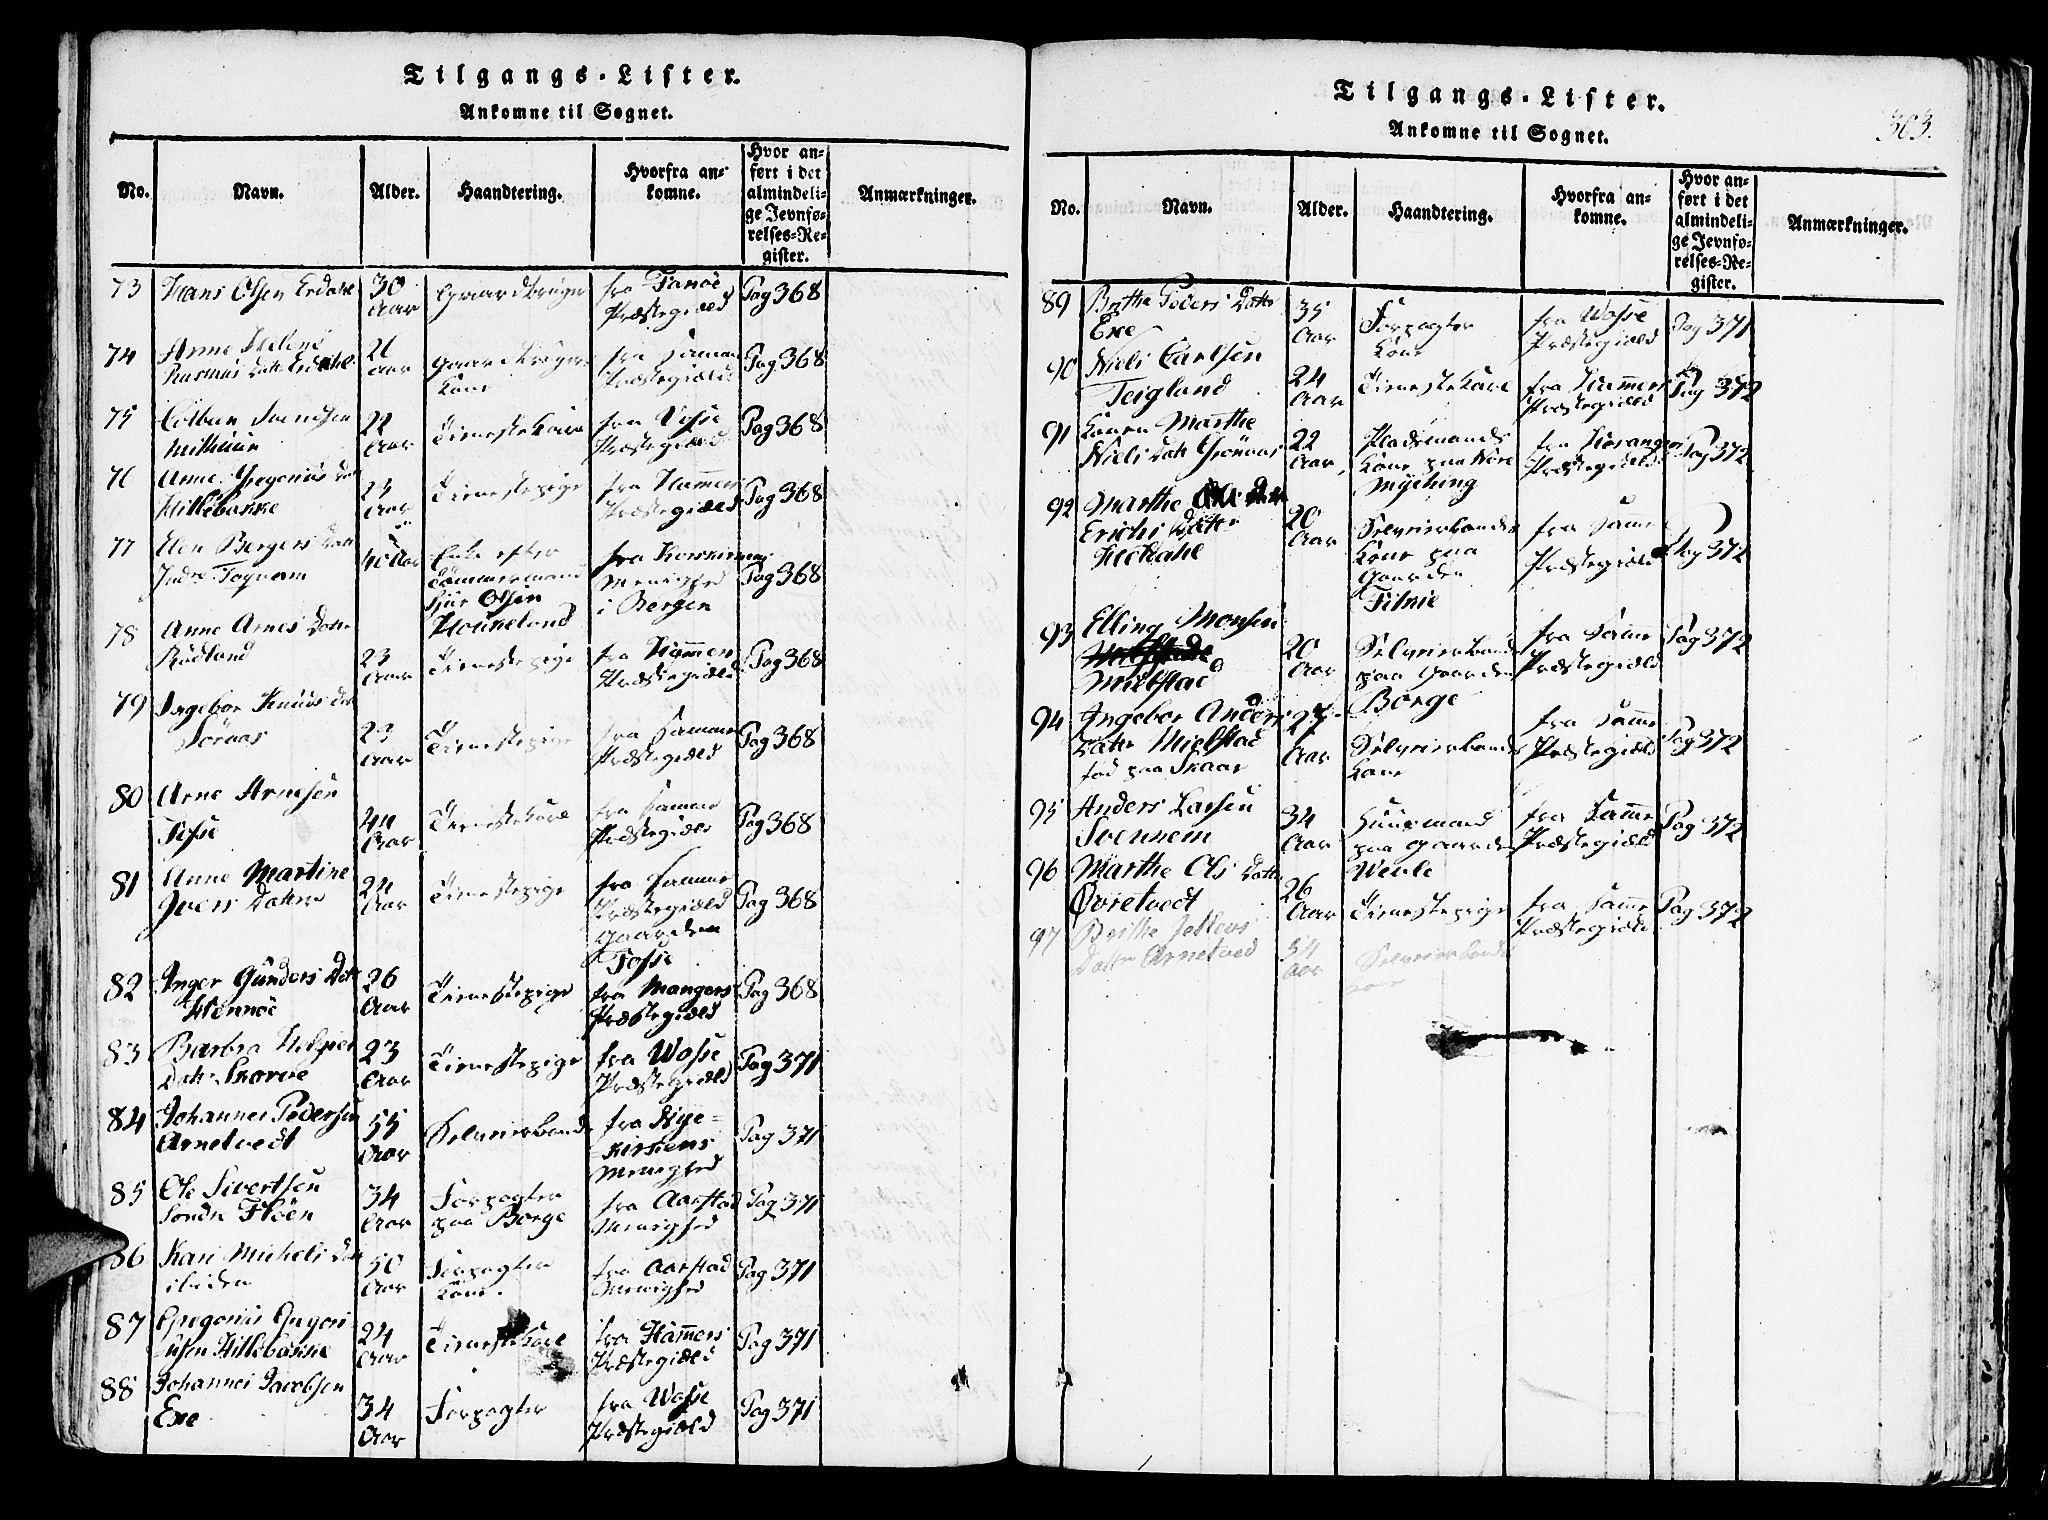 Tilgangs-Lister.
Ankomne til Sognet.
No. Navn. Alder. Haandtering. Hvorfra an- komne. Hvor an- ført i det almindeli- ge Jevnfø- relses-Re- gister. Anmærkninger.
73 Hans Olsen Erdahl 30 Aar Gaardbruger fra Fanöe Præstegiæld Pag 368
74 Anne Helene Rasmus Datt Aar Gaardbrugers Kone fra samme Præstegiæld Pag 368
75 Colban Svendsen 22 Aar Tienestekarl fra Vosse Præstegiæld Pag 368
76 Anne Gregorius Dat Hillebakke 23 Aar Tienestepige fra Hammer Præstegiæld Pag 368
77 Elen Bergers Datt Indre Tognam 40 Aar Enke efter Tömmermand Siur Olsen Houkeland fra Korskirkens Menighed i Bergen Pag 368
78 Anne Arnes Dattr Rödland 23 Aar Tienestepige fra Hammers Præstegiæld Pag 368
79 Ingebor Knuds Dat 23 Aar Tienestepige fra samme Præstegiæld Pag 368
80 Arne Arnesen Tosse 24 Aar Tienestekarl fra samme Præstegiæld Pag 368
81 Anne Martine Ivers Datter 24 Aar Tienestepige fra samme Præstegiæld Gaarden Tosse Pag 368
82 Inger Gunders Datt Hennöe 26 Aar Tienestepige fra Mangers Præstegiæld Pag 368
83 Barbra Helgies Dattr Skorve 23 Aar Tienestepige fra Wosse Præstegiæld Pag 371
84 Johannes Pedersen Arnetvedt 55 Aar Selveierbonde fra Nye= Kirkens Menighed Pag 371
85 Ole Sivertsen Söndre Flöen 34 Aar Forpagter paa Borge fra Aarstad Menighed Pag 371
86 Kari Michels Dat ibiden 50 Aar Forpagter Kone. fra Aarstad Menighed Pag 371
87 Gregorius Gregori usen Hillebakke 24 Aar Tienestekarl fra Hammers Præstegiæld Pag 371
88 Johannes Jacobsen Exe 34 Aar Forpagter fra Wosse Præstegiæld Pag 371
Tilgangs-Lister.
Ankomne til Sognet.
303.
No. Navn. Alder. Haandtering. Hvorfra an- komne. Hvor an- ført i det almindeli- ge Jevnfø- relses-Re- gister. Anmærkninger.
89 Brithe Peders Dattr Exe 35 Aar Forpagter Kone fra Wosse Præstegiæld Pag 371
90 Niels Carlsen Teigland 24 Aar Tienestekarl fra Hammers Præstegiæld Pag 372
91 Konen Marthe Niels Datt Grönaas 22 Aar, Pladsmands Kone paa Nöre Mychting fra Præstegiæld Pag 372
92 Marthe Erichs Datter 20 Aar Selveierbondes Kone paa Gaarden fra samme Præstegiæld Pag 372
93 Elling Monsen Mielstad 20 Aar Selveierbonde paa Gaarden Borge fra samme Præstegiæld Pag 372
94 Ingebor Anders Dattr Mielstad föd paa Skaar 27 Aar Selveierbondes Kone fra samme Præstegiæld Pag 372
95 Anders Larsen Svennem 34 Aar Huusmand paa Gaarden Wevle fra samme Præstegiæld Pag 372
96 Marthe Ols Datter Øvretvedt 26 Aar Tienestepige fra samme Præstegiæld Pag 372
97 Brithe Datter Arnetved 54 Aar Selveierbonde Kone